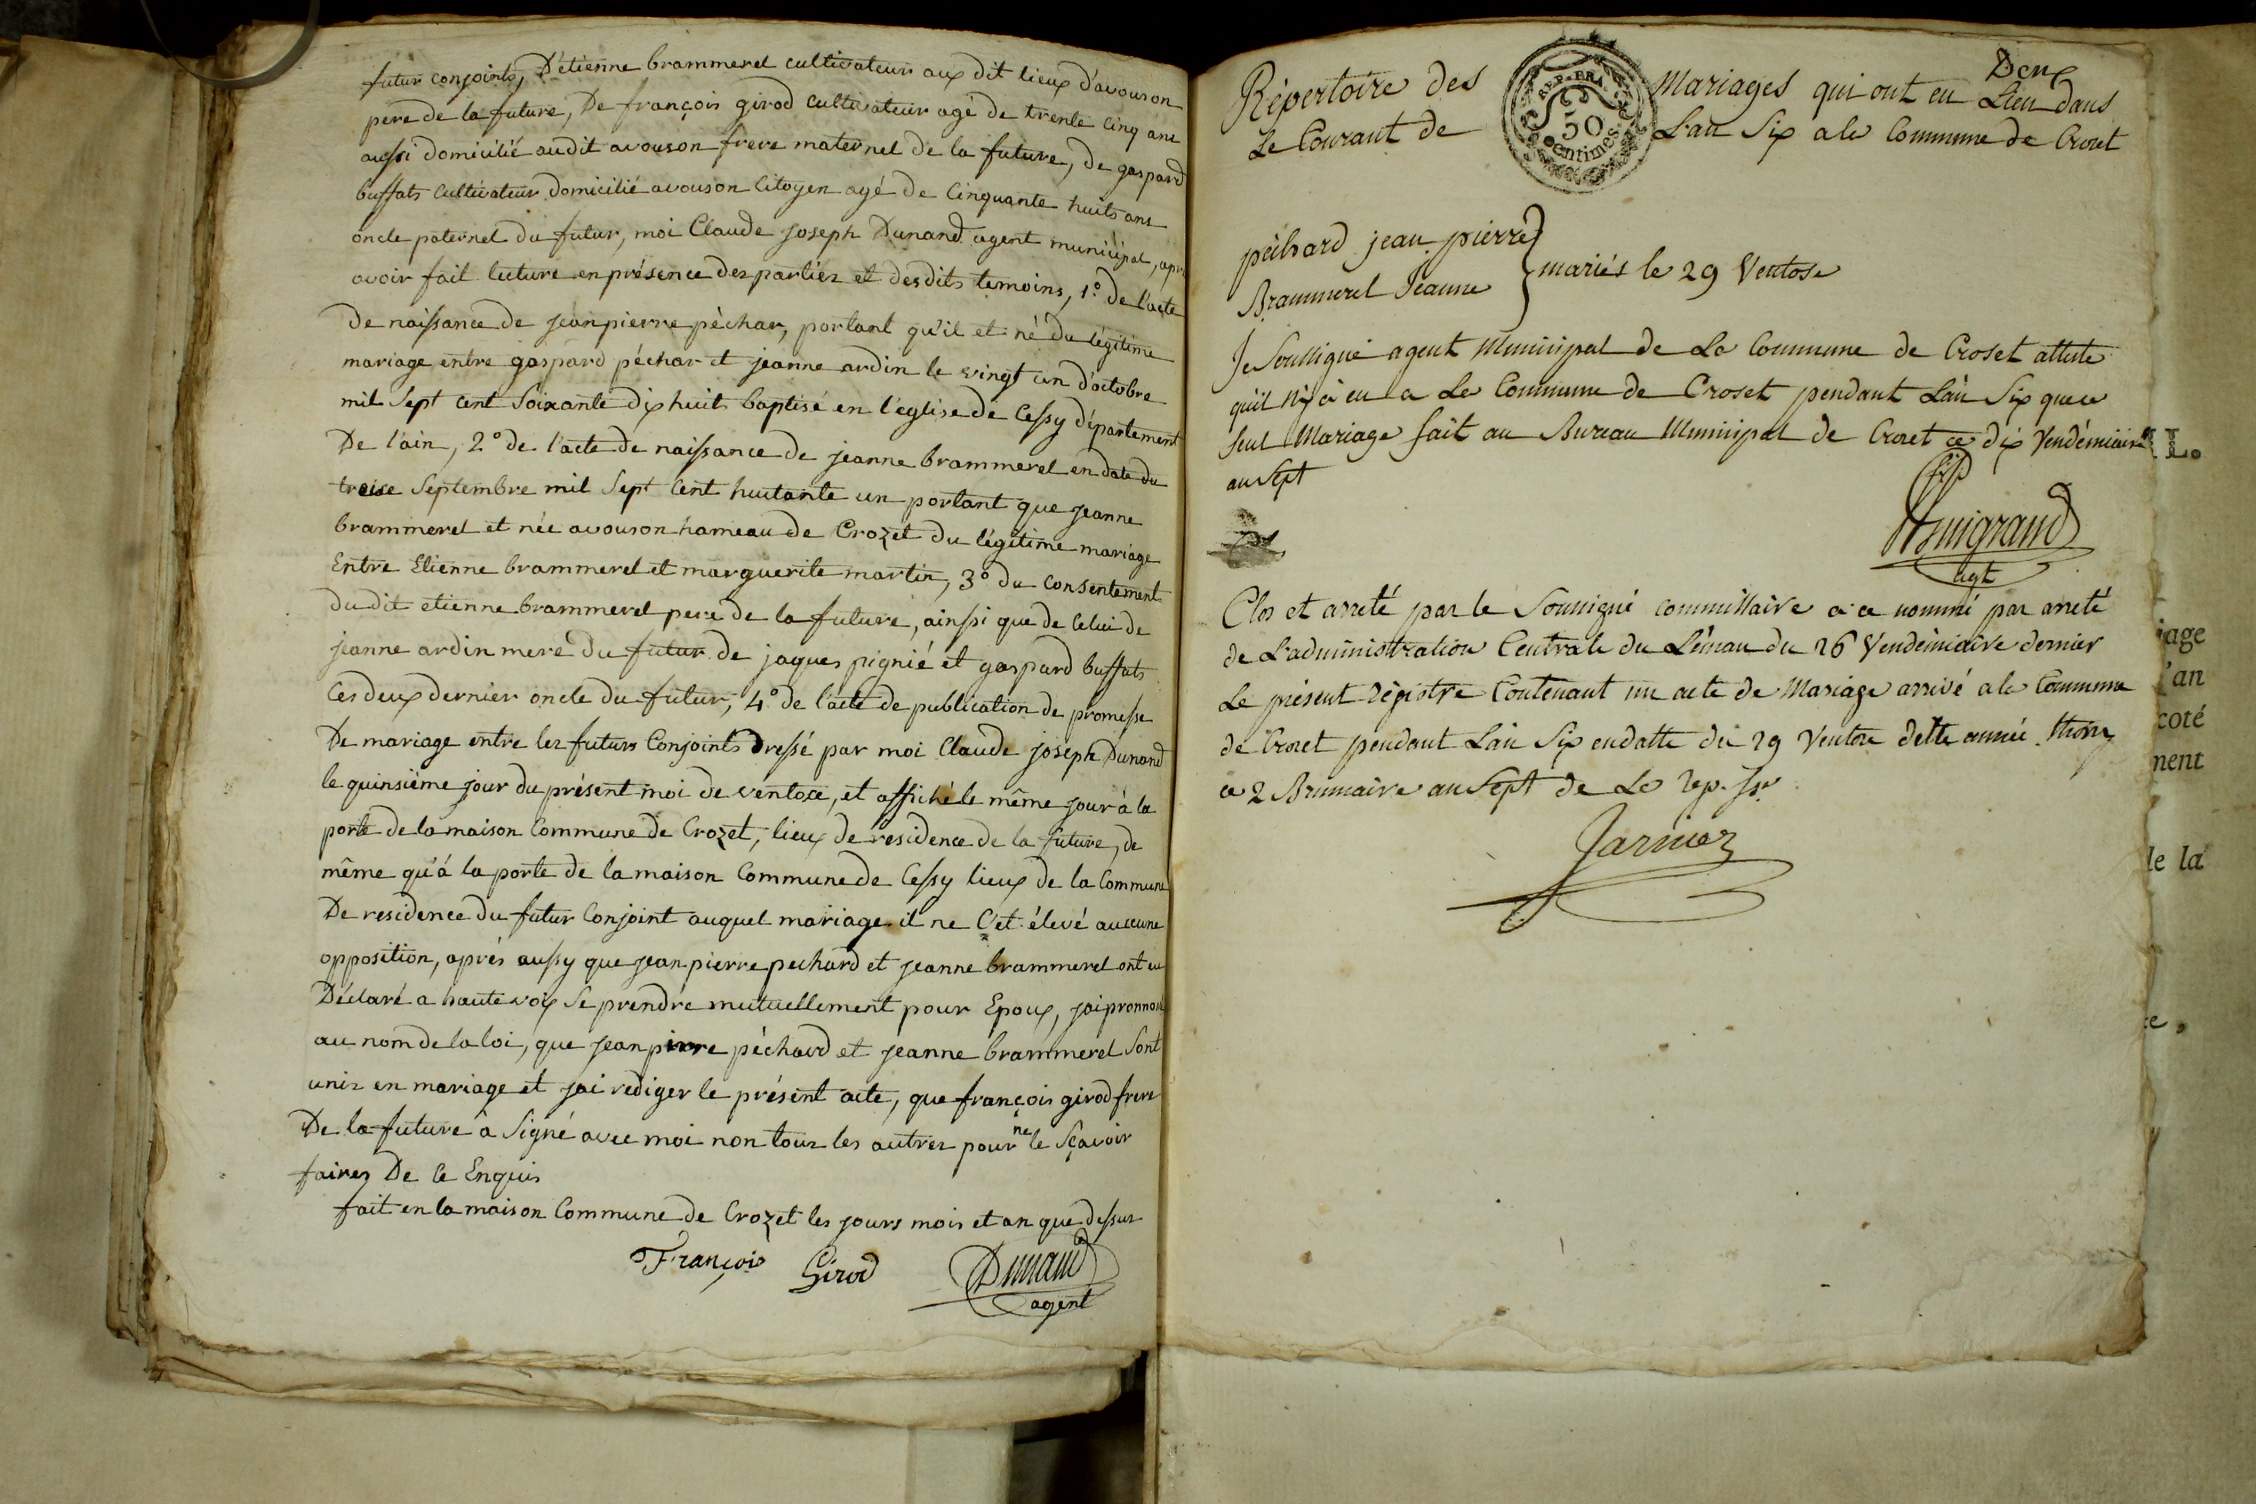 futur conjoints, D'etienne brammerel cultivateur aux dit lieux d'avouson
pere de la future, De françois girod cultivateur agé de trente cinq ans
aussi domicilié audit avouson frere maternel de la future, de gaspard
buffats cultivateur domicilié avouson Citoyen agé de Cinquante huits ans
oncle paternel du futur, moi Claude joseph Dunand agent municipal, apr
avoir fait lecture en présence des parties et desdits temoins, 1.° de l'acte
De naissance de jeanpierre péchar, portant qu'il et né du légitime
mariage entre gaspard péchar et jeanne ardin le vingt un d'octobre
mil Sept cent Soixante dix huit baptisé en l'église de Cessy département
De l'ain, 2° de l'acte de naissance de jeanne brammerel en date du
treise Septembre mil Sept Cent huitante un portant que jeanne
brammerel et née avouson hameau de Crozet du légitime mariage
Entre Etienne brammerel et marguerite martin, 3° du consentement
du dit etienne brammerel pere de la future, ainsi que de celui de
jeanne ardin mere du futur de jaques pignié et gaspard buffats
Ces deux dernier oncle du futur, 4° de l'acte de publication de promesse
De mariage entre les futurs Conjoints dressé par moi Claude joseph Dunand
le quinsiéme jour du présent moi de ventose, et affiché le même jour à la
porte de la maison Commune de Crozet, lieux de residence de la future, de
même qu'á la porte de la maison Commune de Cessy lieux de la Commune
De residence du futur Conjoint auquel mariage il ne C'et élevé aucune
opposition, aprés aussy que jeanpierre pechard et jeanne brammerel ont eu
Déclaré a haute voix Se prendre mutuellement pour Epoux, jai prononc
au nom de la loi, que jeanpierre péchard et jeanne brammerel Sont
unis en mariage et jai rediger le présent acte, que françois girod frere
De la future à Signé avec moi non tous les autres pour ne le Sçavoir
faires De ce Enquis
fait en la maison Commune de Crozet les jours mois et an que dessus
François Girod Dunand
agent
Deux
Répertoire des Mariages qui ont eu Lieu dans
Le Courant de L'an Six a la Commune de Crozet
REP. FRA.
50
Centimes
péchard jean pierre
Brammerel Jeanne
mariés le 29 Ventose
Je Soussigné agent Municipal de La Commune de Croset atteste
qu'il n'y à eu a La Commune de Croset pendant L'an Six que ce
Seul Mariage fait au Bureau Municipal de Crozet ce dix Vendémiaire
an Sept
agt
Clos et arreté par le Soussigné commissaire a ce nommé par arreté
de L'administration Centrale du Léman du 26 Vendémiaire dernier
Le présent régistre Contenant un acte de Mariage arrivé a la Commune
de Crozet pendant L'an Six en datte du 29 Ventose dette année. Thoiry
ce 2 Brumaire an Sept de La rep. fse
Jarnier
L.
iage
l'an
coté
ment
de la